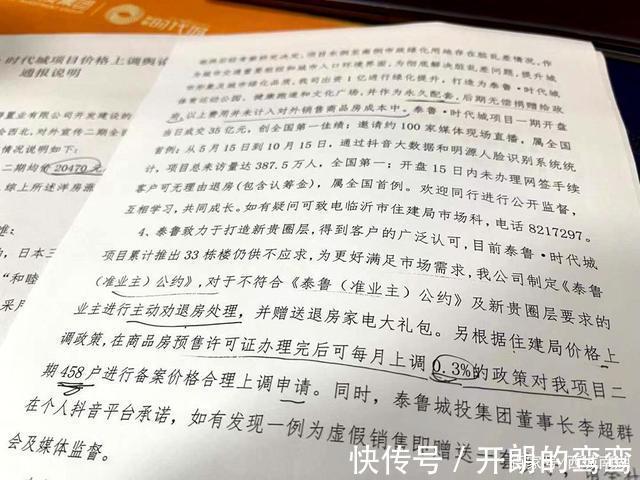 时代城
时代城项目价格上调舆
通报说明
置业有限公司开发建设的
合西北,对外宣传二期全
情况说明如下:
二期均价20470元
综上所述洋房源
内,日本三
“和睦
采用
作为城市交通重要枢纽和城市人口环境界面,为彻底解决脏乱差问题,提升城
市形象及城市绿化品质,我司出资1亿进行绿化提升,打造为泰鲁·时代城
体育运动公园、健康跑道和文化广场,并作为永久配套,后期无偿捐赠给政
府,以上费用并未计入对外销售商品房成本中。泰鲁·时代城项目一期开盘
当日成交35亿元,创全国第一佳绩;邀请约100家媒体现场直播,属全国
首例;从5月15日到10月15日,通过抖音大数据和明源人脸识别系统统
计,项目总来访量达387.5万人,全国第一;开盘15日内未办理网签手续
客户可无理由退房(包含认筹金),属全国首例。欢迎同行进行公开监督,
互相学习,共同成长。如有疑问可致电临沂市住建局市场科,电话8217297。
4、泰鲁致力于打造新贵圈层,得到客户的广泛认可,目前泰鲁·时代城
项目累计推出33栋楼仍供不应求,为更好满足市场需求,我公司制定《泰鲁
(准业主)公约》,对于不符合《泰鲁(准业主)公约》及新贵圈层要求的
业主进行主动劝退房处理,并赠送退房家电大礼包。另根据住建局价格上
调政策,在商品房预售许可证办理完后可每月上调0.3%的政策对我项目二
期458户进行备案价格合理上调申请。同时,泰鲁城投集团董事长李超群
在个人抖音平台承诺,如有发现一例为虚假销售即赠送一套房
会及媒体监督。
快传号/开朗的弯弯